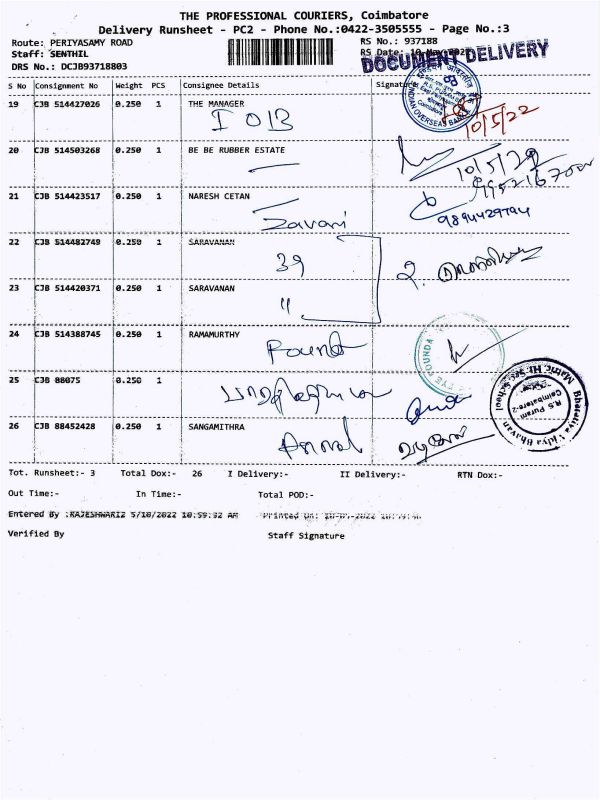 THE PROFESSIONAL COURIERS, Coimbatore
Delivery Runsheet - PC2 - Phone No.:0422-3505555 - Page No.:3
Route: PERIYASAMY ROAD
RS No.: 937188
Staff: SENTHIL
RS Date: 10-May-2022
DOCUMENT DELIVERY
DRS No.: DCJB93718803
S No Consignment No Weight PCS Consignee Details Signature
INDIAN OVERSEAS BANK
19 CJB 514427026 0.250 1 THE MANAGER
IOB
10/5/22
20 CJB 514503268 0.250 1 BE BE RUBBER ESTATE
10/5/22
21 CJB 514423517 0.250 1 NARESH CETAN
Zavari
9894429794
22 CJB 514482749 0.250 1 SARAVANAN
39
23 CJB 514420371 0.250 1 SARAVANAN
11
24 CJB 514388745 0.250 1 RAMAMURTHY
Found
EYE FOUNDA
25 CJB 88075 0.250 1
Bharatiya Vidya Bhavan
Matric. Hr. Sec. School
R.S. Puram
Coimbatore-2
26 CJB 88452428 0.250 1 SANGAMITHRA
Tot. Runsheet:- 3 Total Dox:- 26 I Delivery:- II Delivery:- RTN Dox:-
Out Time:- In Time:- Total POD:-
Entered By :RAJESHWARI2 5/10/2022 10:59:32 AM Printed On: 10-05-2022
Verified By Staff Signature